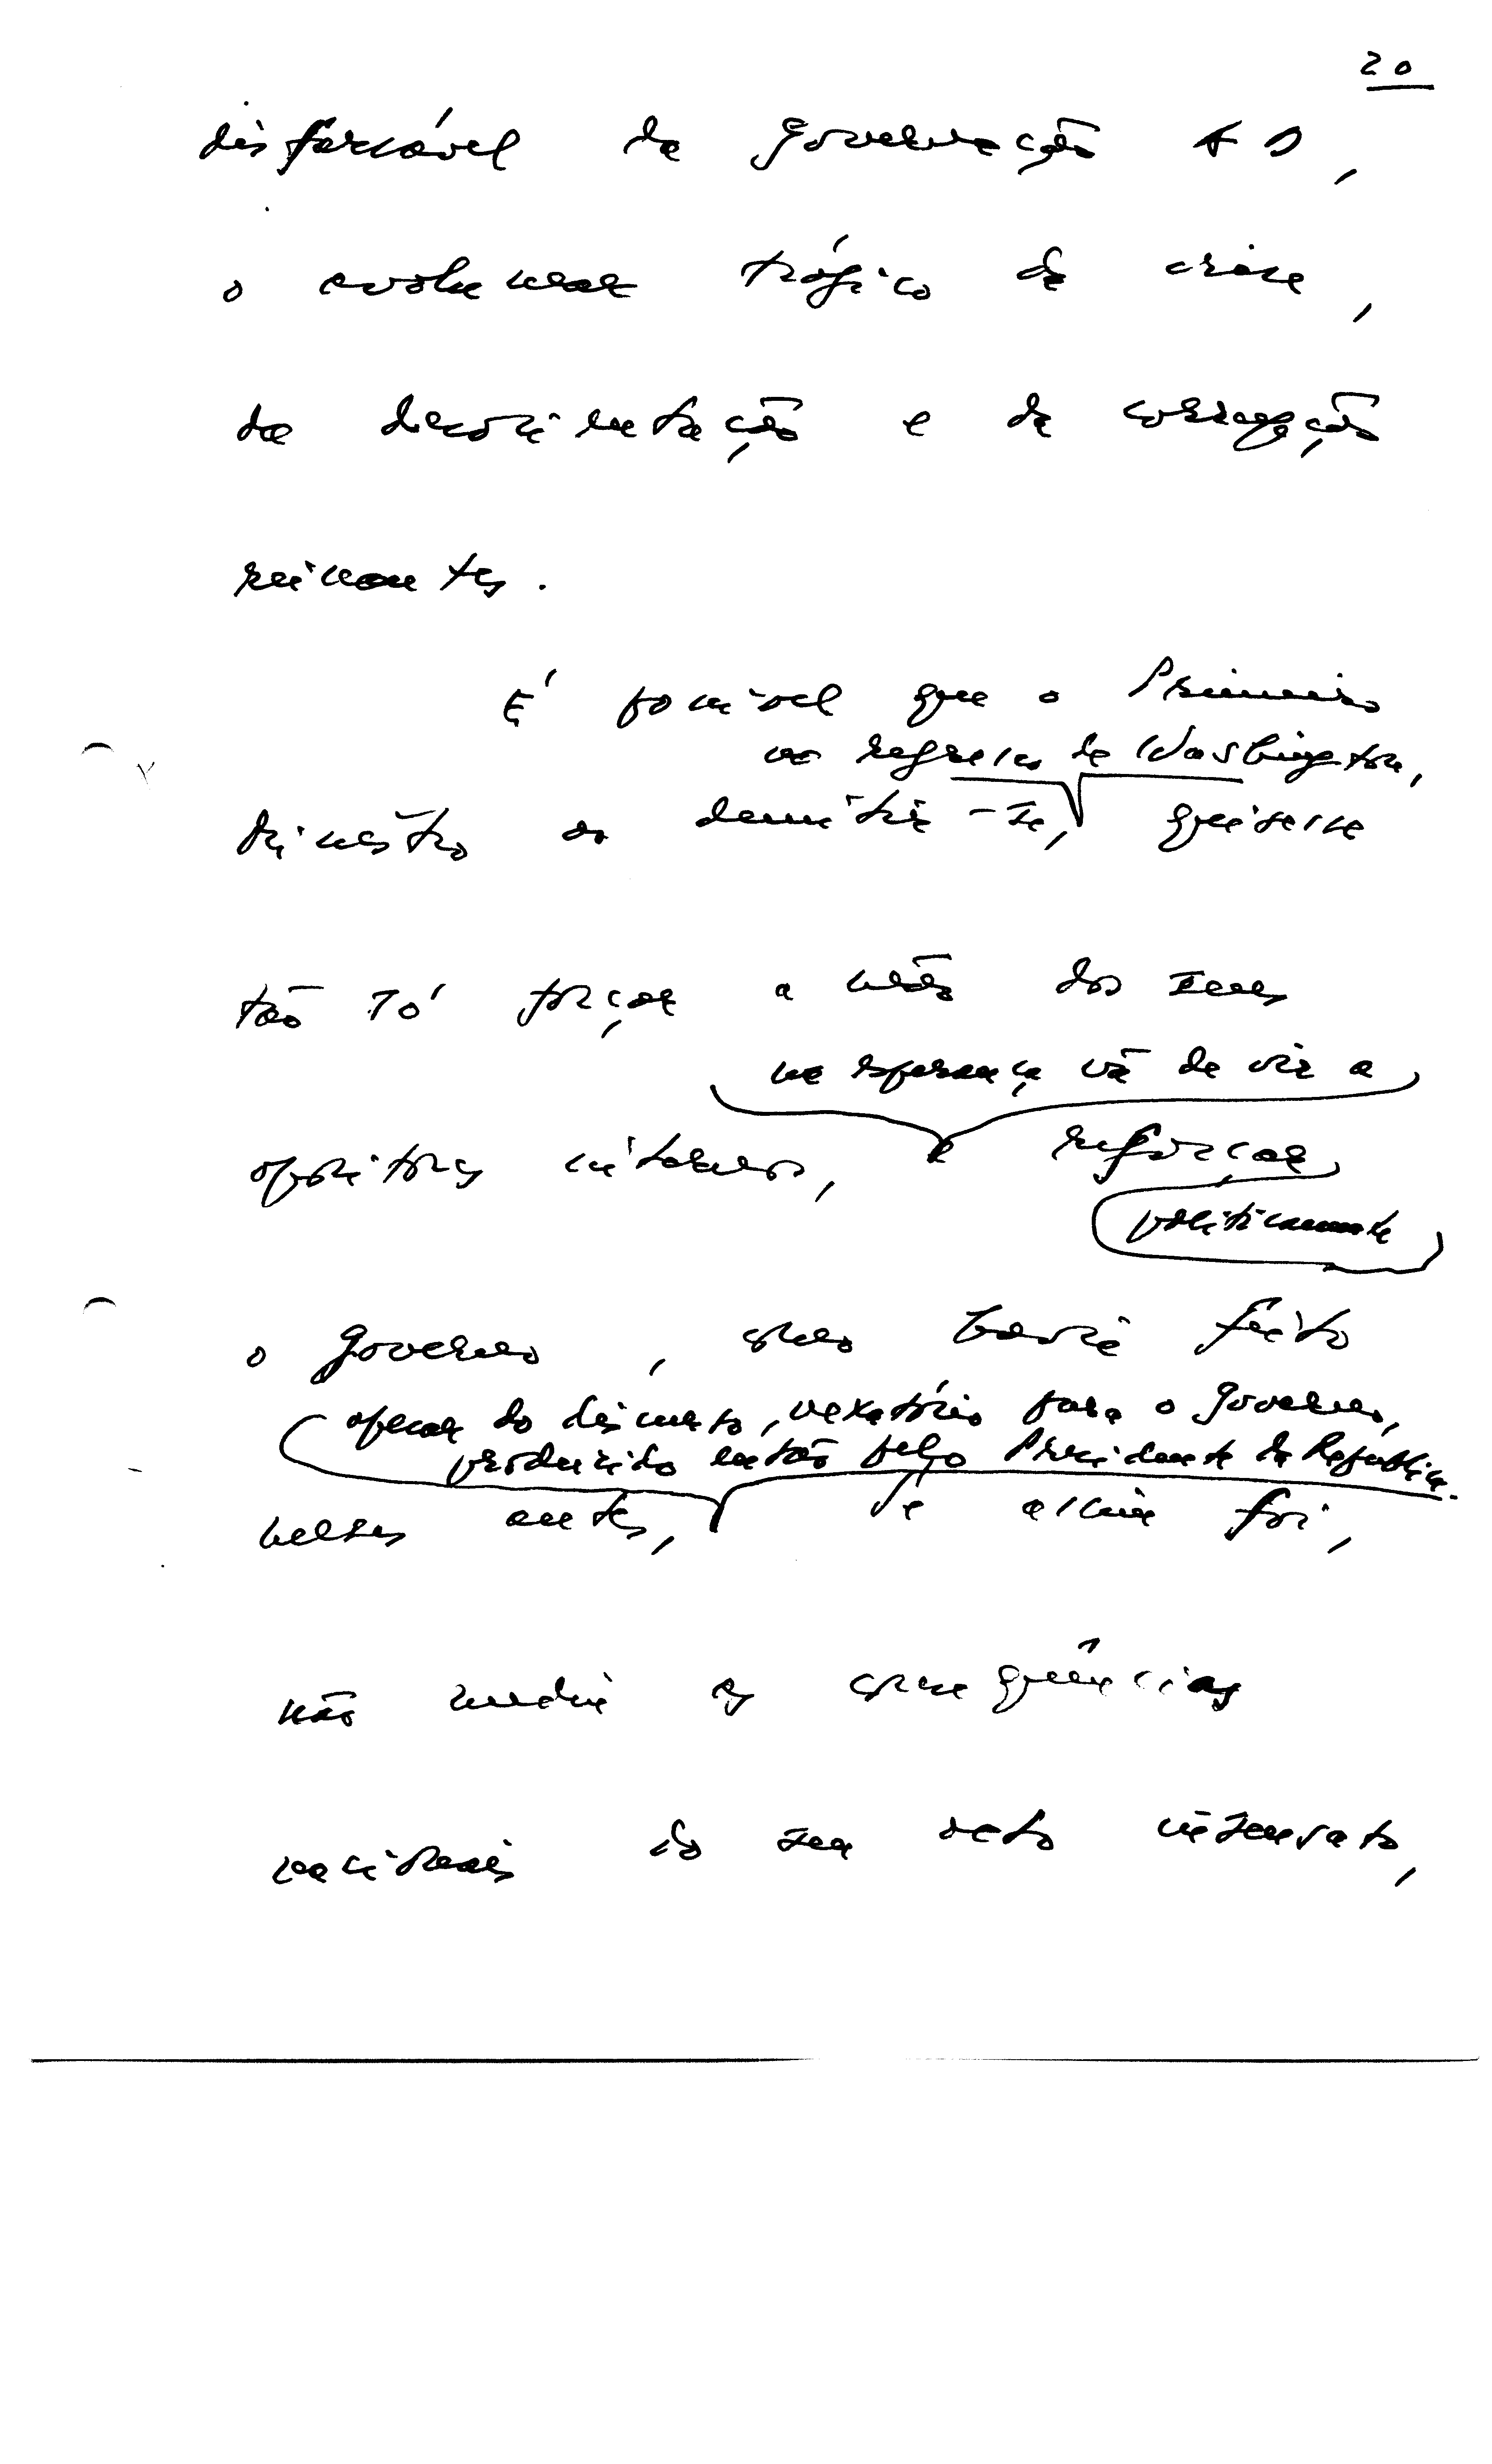 20
disfarçável da governação AD,
o avolumar trágico da crise,
da desorientação e da corrupção
reinantes.
É possível que o Primeiro
no regresso de Washington,
Ministro ao demitir-se, quisesse
tão só forçar a mão dos seus
na esperança vã de vir a
opositores internos, e reforçar
politicamente
o governo, como havia feito
apesar do discurso, vexatório para o governo,
produzido então pelo Presidente da República.
meses antes, Se assim foi,
não mediu as consequências
nacionais do seu acto insensato,